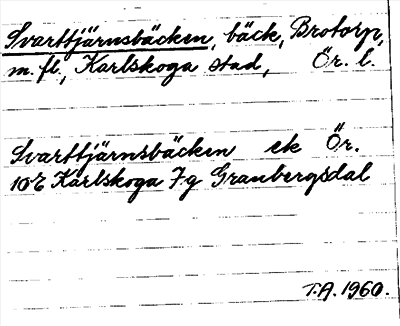 Svarttjärnsbäcken, bäck, Brotorp,
m. fl., Karlskoga stad, Ör. l.
Svarttjärnsbäcken ek Ör.
10E Karlskoga 7g Granbergsdal
T.A. 1960.